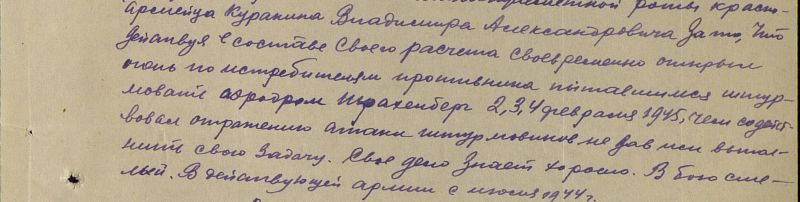 роты красно-
армейца Куракина Владимира Александровича За то, что
действуя в составе своего расчета своевременно открыл
огонь по истребителям противника пытавшимся штур-
мовать аэродром Трахенберг 2, 3, 4 февраля 1945, чем содейст-
вовал отражению атаки штурмовиков не дав им выпол-
нить свою задачу. Свое дело знает хорошо. В бою сме-
лый. В действующей армии с июня 1944 г.